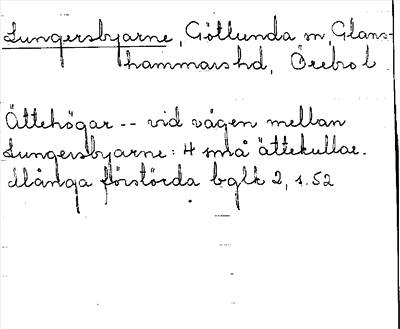 Lungersbyarne, Götlunda sn, Glans-
hammars hd, Örebro l
Ättehögar -- vid vägen mellan
Lungersbyarne: 4 små ättekullar.
Många förstörda bglh 2, s. 52